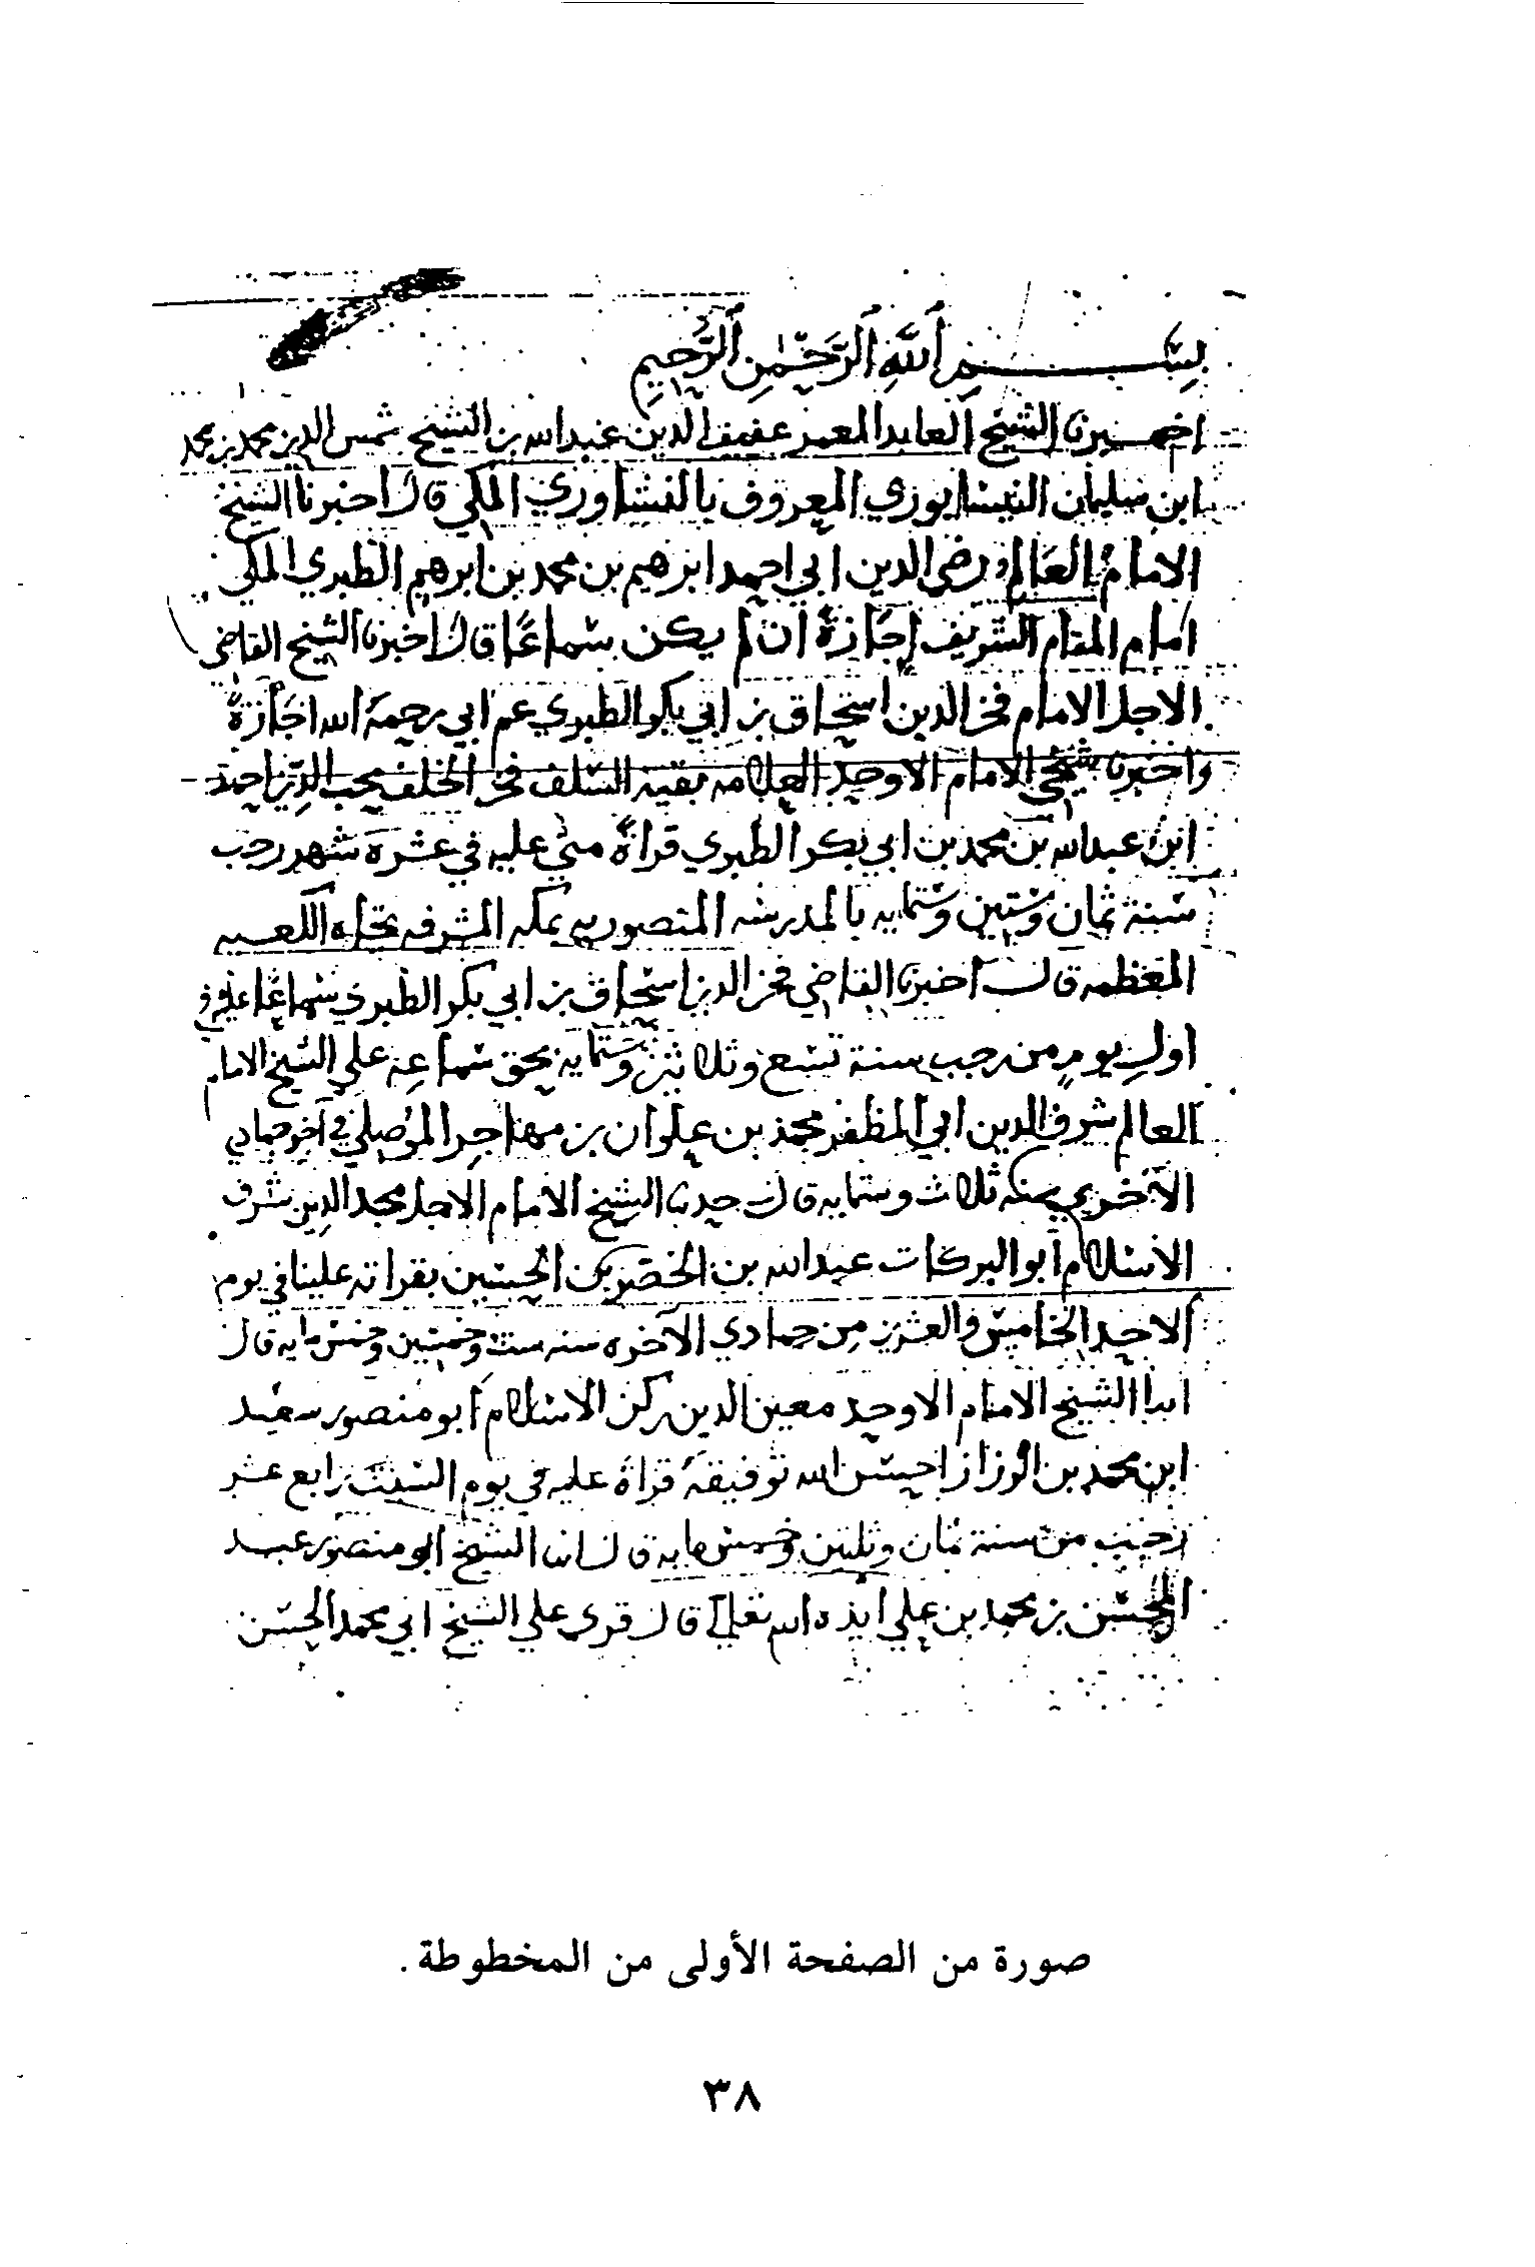 بِسْمِ ٱللَّهِ ٱلرَّحْمٰنِ ٱلرَّحِيمِ
اخبرنا الشيخ العابد المعمر عفيف الدين عبدالله بن الشيخ شمس الدين محمد بن محمد
ابن سليمان النيسابوري المعروف بالنشاوري المكي قال اخبرنا الشيخ
الامام العالم رضي الدين ابي احمد ابرهيم بن محمد بن ابرهيم الطبري المكي
امام المقام الشريف إجازةً ان لم يكن سماعًا قال اخبرنا الشيخ القاضي
الاجل الامام فخر الدين اسحاق بن ابي بكر الطبري عم ابي رحمه الله اجازةً
واخبرنا شيخي الامام الاوحد العلامه بقية السلف فخر الخلف محب الدين احمد
ابن عبدالله بن محمد بن ابي بكر الطبري قراةً مني عليه في عشرة شهر رجب
سنة ثمان وستين وستمايه بالمدرسه المنصوريه بمكه المشرفه تجاه الكعبه
المعظمه قال اخبرنا القاضي فخر الدين اسحاق بن ابي بكر الطبري سماعًا عليه في
اول يومٍ من رجب سنة تسع وثلاثين وستمايه بحق سماعه علي الشيخ الامام
العالم شرف الدين ابي المظفر محمد بن علوان بن مهاجر الموصلي في آخر جمادي
الآخري سنه ثلاث وستمايه قال حدثنا الشيخ الامام الاجل مجد الدين شرف
الاسلام أبو البركات عبدالله بن الخضر بن الحسين بقراته علينا في يوم
الاحد الخامس والعشرين من جمادي الآخره سنه ست وخمسين وخمس مايه قال
انبا الشيخ الامام الاوحد معين الدين ركن الاسلام أبو منصور سعيد
ابن محمد بن الرزاز احسن الله توفيقه قراة عليه في يوم السبت رابع عشر
رجب من سنة ثمان وثلثين وخمس مايه قال انا الشيخ ابو منصور عبد
المحسن بن محمد بن علي ايده الله تعلى قال قري علي الشيخ ابي محمد الحسن
صورة من الصفحة الأولى من المخطوطة .
٣٨